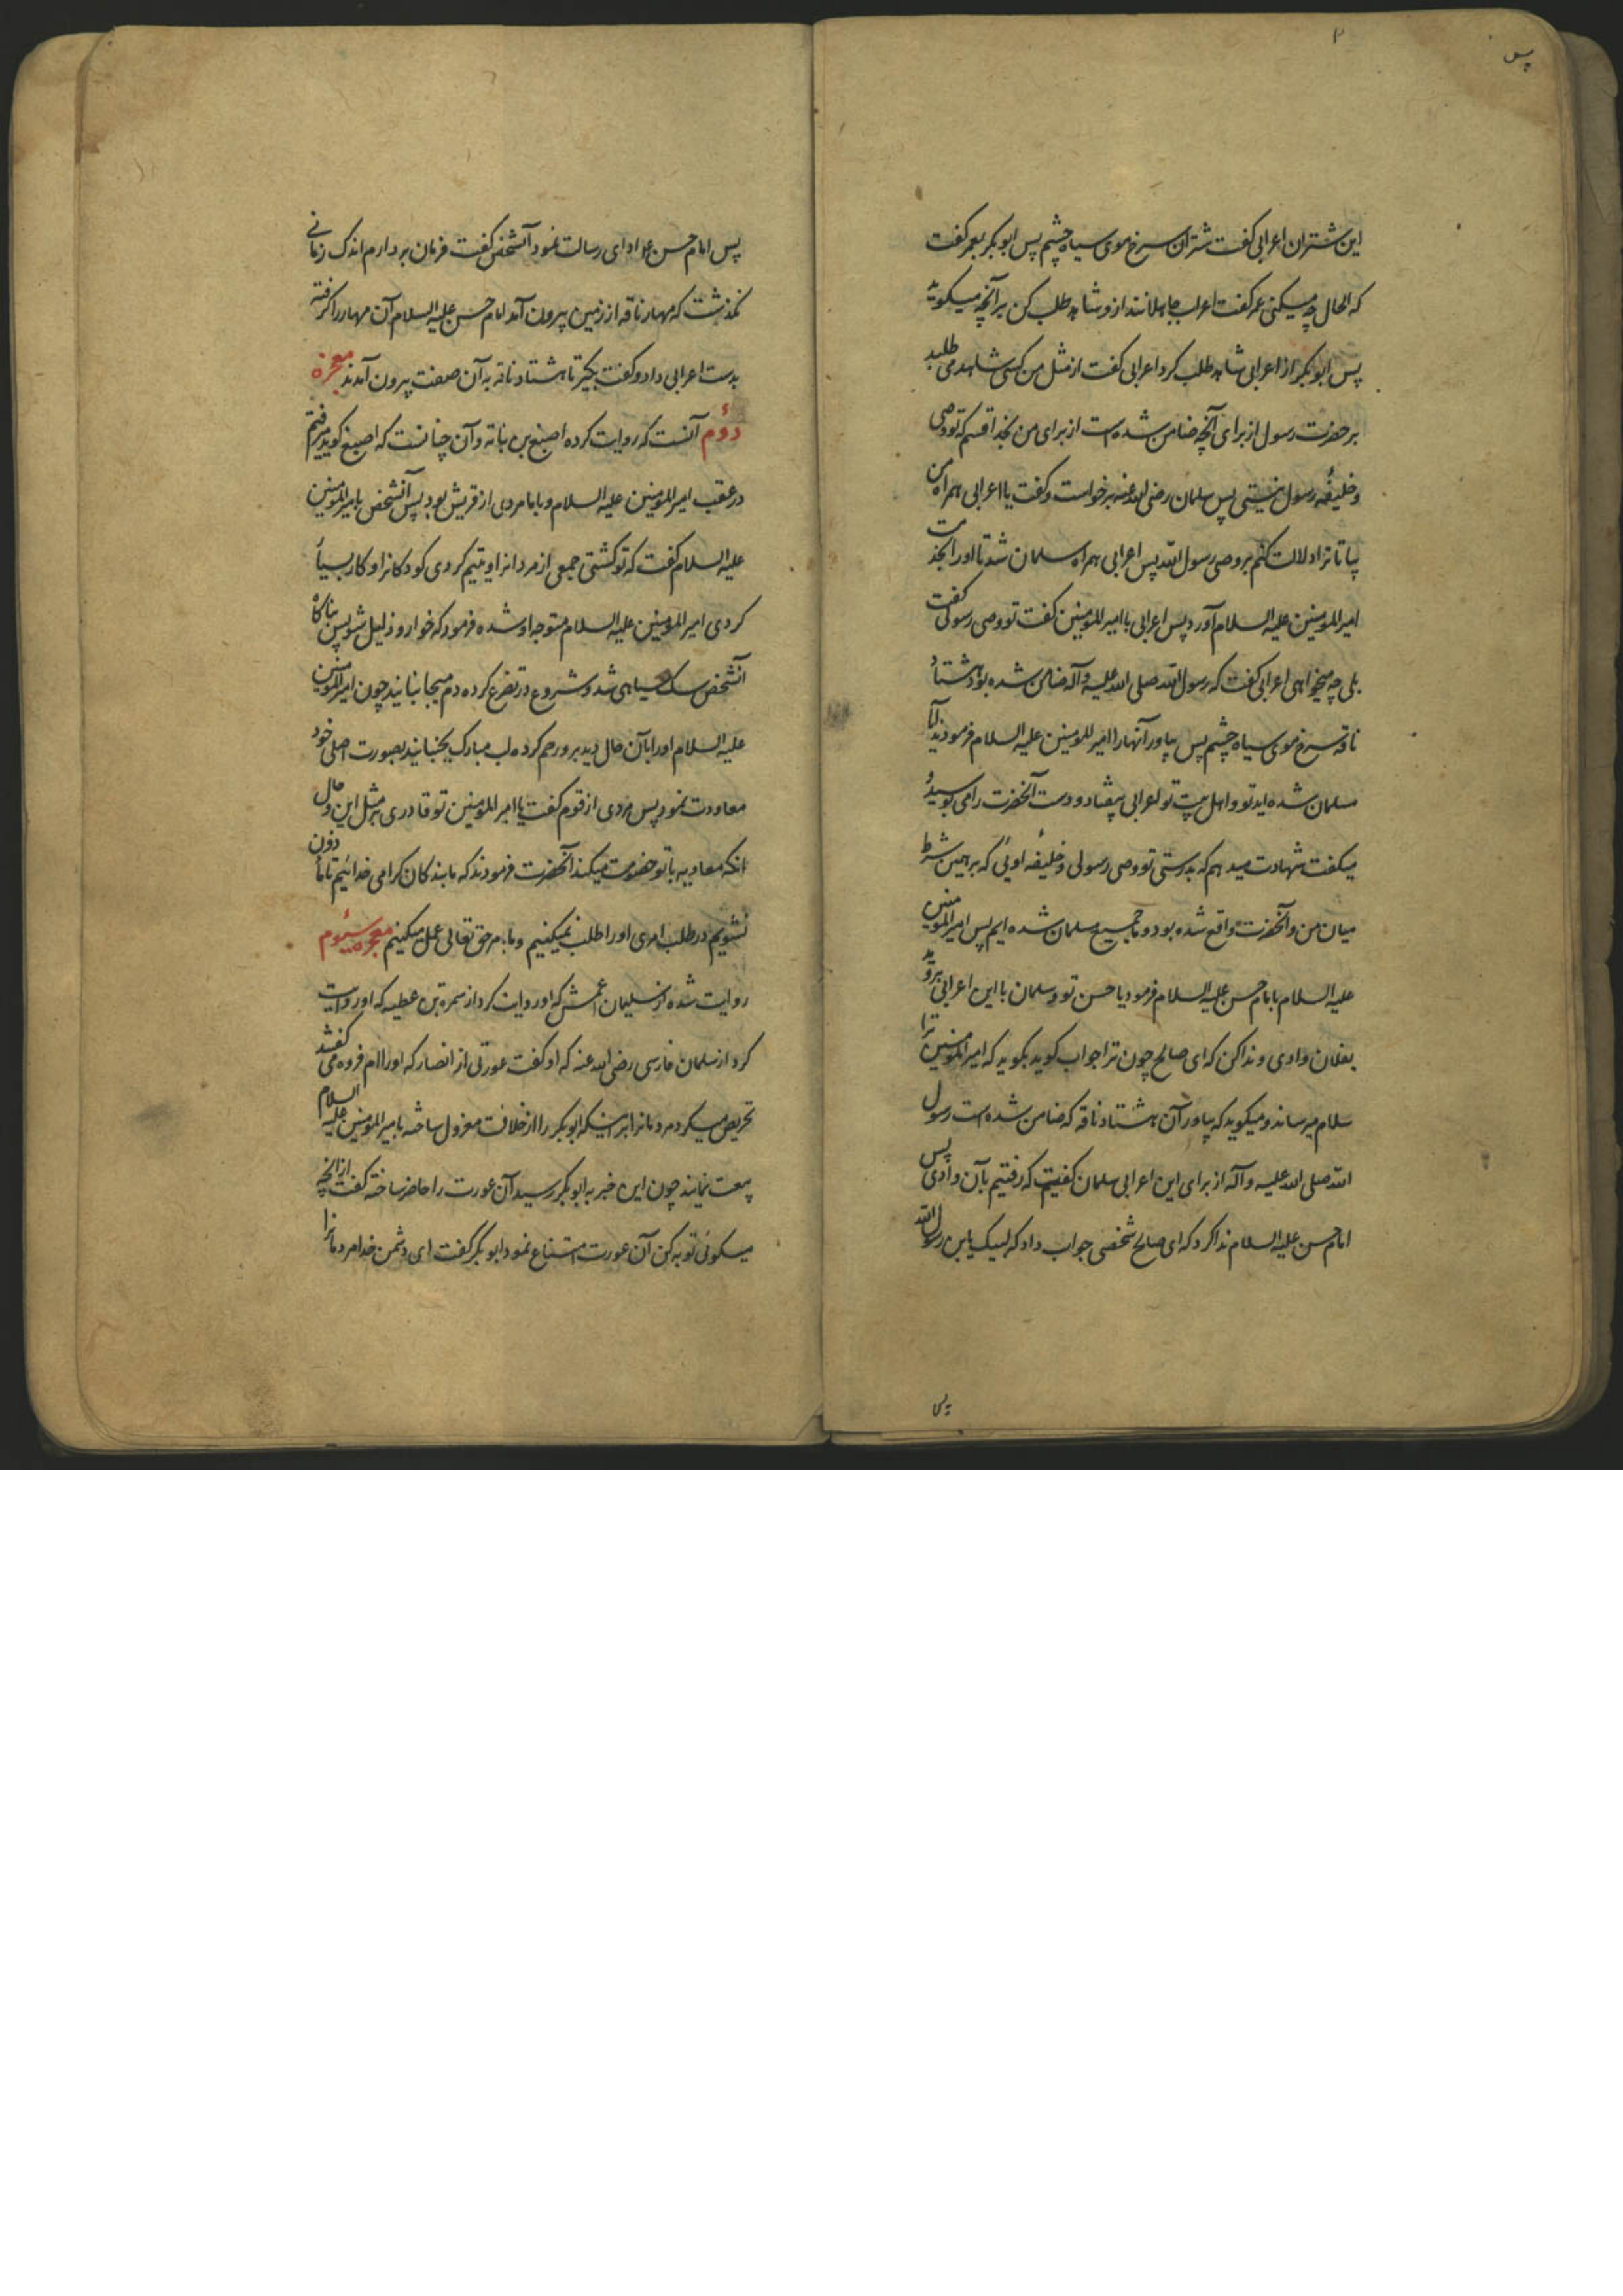 ۲
پس
این شتران اعرابی گفت شتران سرخ موی سیاه چشم پس ابوبکر بعمر گفت
که الحال چه میکنی عمر گفت اعراب جاهلانند ازو شاهد طلب کن بر آنچه میگوید
پس ابوبکر از اعرابی شاهد طلب کرد اعرابی گفت از مثل من کسی شاهد می طلبد
بر حضرت رسول از برای آنچه ضامن شده است از برای من بخدا قسم که تو وصی
و خلیفهٔ رسول نیستی پس سلمان رضی الله عنه برخواست و گفت یا اعرابی همراه من
بیا تا ترا دلالت کنم بر وصی رسول الله پس اعرابی همراه سلمان شد تا اورا بخدمت
امیرالمومنین علیه السلام آورد پس اعرابی با امیرالمومنین گفت تو وصی رسولی گفت
بلی چه میخواهی اعرابی گفت که رسول الله صلی الله علیه و آله ضامن شده بود هشتاد
ناقه سرخ موی سیاه چشم پس بیاور آنها را امیرالمومنین علیه السلام فرمودند آیا
مسلمان شده اید تو و اهل بیت تو اعرابی بیفتاد و دست آنحضرت را می بوسید و
میگفت شهادت میدهم که بدرستی تو وصی رسولی و خلیفهٔ اوئی که بر همین شرط
میان من و آنحضرت واقع شده بود و ما جمیع مسلمان شده ایم پس امیرالمومنین
علیه السلام بامام حسن علیه السلام فرمود یا حسن تو و سلمان با این اعرابی بروید
بفلان وادی و ندا کن که ای صالح چون ترا جواب گوید بگوید که امیرالمومنین ترا
سلام میرساند و میگوید که بیاور آن هشتاد ناقه که ضامن شده است رسول
الله صلی الله علیه و آله از برای این اعرابی سلمان گفت که رفتیم بآن وادی پس
امام حسن علیه السلام ندا کرد که ای صالح شخصی جواب داد که لبیک یابن رسول الله
پس
پس امام حسن ع ادای رسالت نمود آنشخص گفت فرمان بردارم اندک زمانی
نگذشت که مهار ناقه از زمین بیرون آمد امام حسن علیه السلام آن مهار را گرفته
بدست اعرابی داد و گفت بگیر تا هشتاد ناقه به آن صفت بیرون آمدند معجزه
دؤم آنست که روایت کرده اصبغ بن نباته و آن چنانست که اصبغ گوید میرفتم
در عقب امیرالمومنین علیه السلام و با ما مردی از قریش بود پس آنشخص بامیرالمومنین
علیه السلام گفت که تو کشتی جمعی از مردانرا و یتیم کردی کودکانرا و کار بسیار
کردی امیرالمومنین علیه السلام متوجه او شده فرمود که خوار و ذلیل شو پس ناگاه
آنشخص سک سیاهی شد و شروع در تضرع کرده دم میجنبانید چون امیرالمومنین
علیه السلام اورا بآن حال دید برو رحم کرده لب مبارک بجنبانید بصورت اصلی خود
معاودت نمود پس مردی از قوم گفت یا امیرالمومنین تو قادری بر مثل این و حال
انکه معاویه با تو خصومت میکند آنحضرت فرمودند که ما بندکان کرامی خدائیم تا ماذون
نشویم در طلب امری اورا طلب نمیکنیم و بامر حق تعالی عمل میکنیم معجزه سیؤم
روایت شده از سلیمان اعمش که او روایت کرد از سمره بن عطیه که او روایت
کرد از سلمان فارسی رضی الله عنه که او گفت عورتی از انصار که اورا ام فروه می گفتند
تحریص میکرد مردمانرا بر اینکه ابوبکر را از خلافت معزول ساخته بامیرالمومنین علیه السلام
بیعت نمایند چون این خبر به ابوبکر رسید آن عورت را حاضر ساخته گفت از آنچه
میگوئی توبه کن آن عورت امتناع نمود ابوبکر گفت ای دشمن خدا مردمانرا